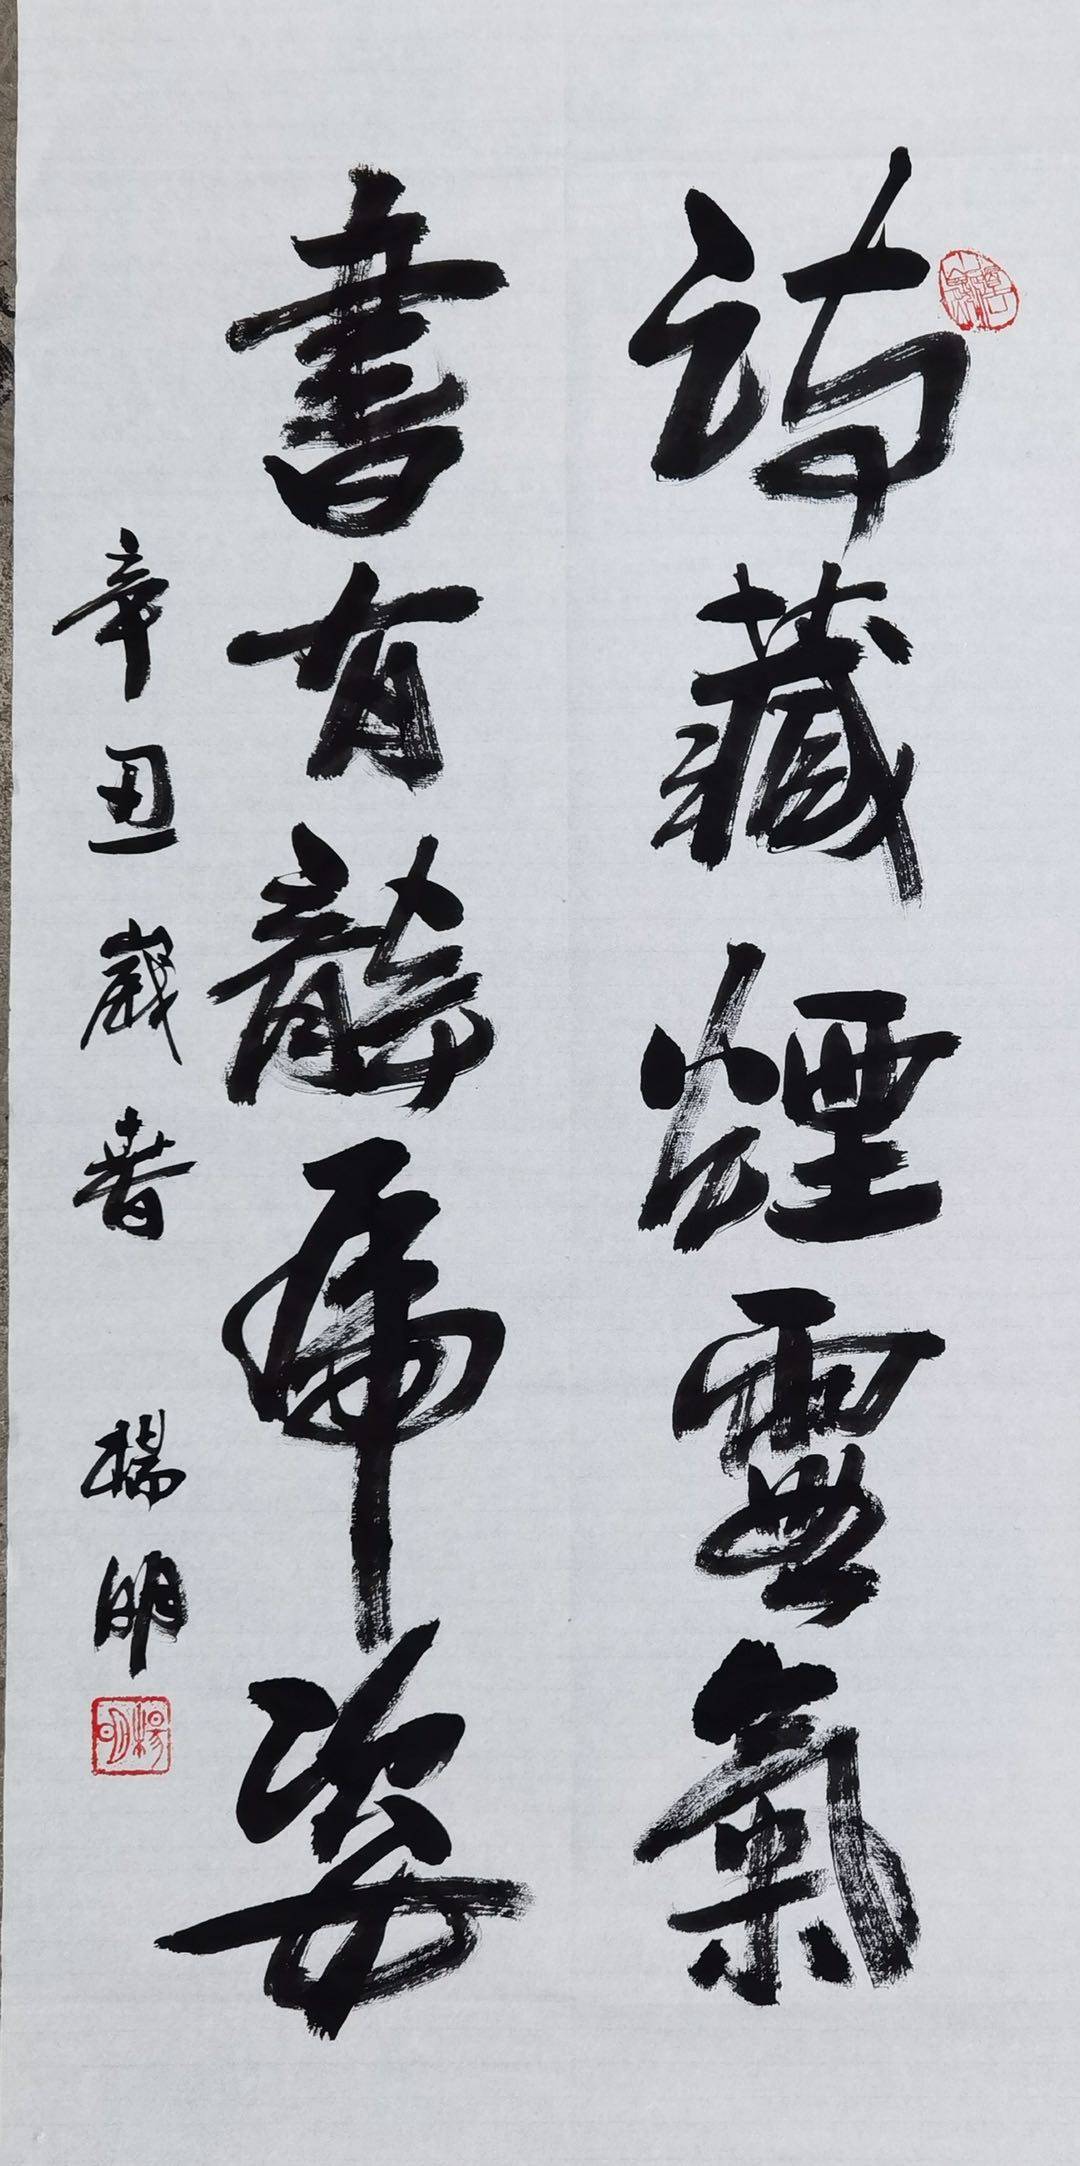 詩藏煙雲氣
書有龍虎姿
辛丑歲春 楊明
楊明